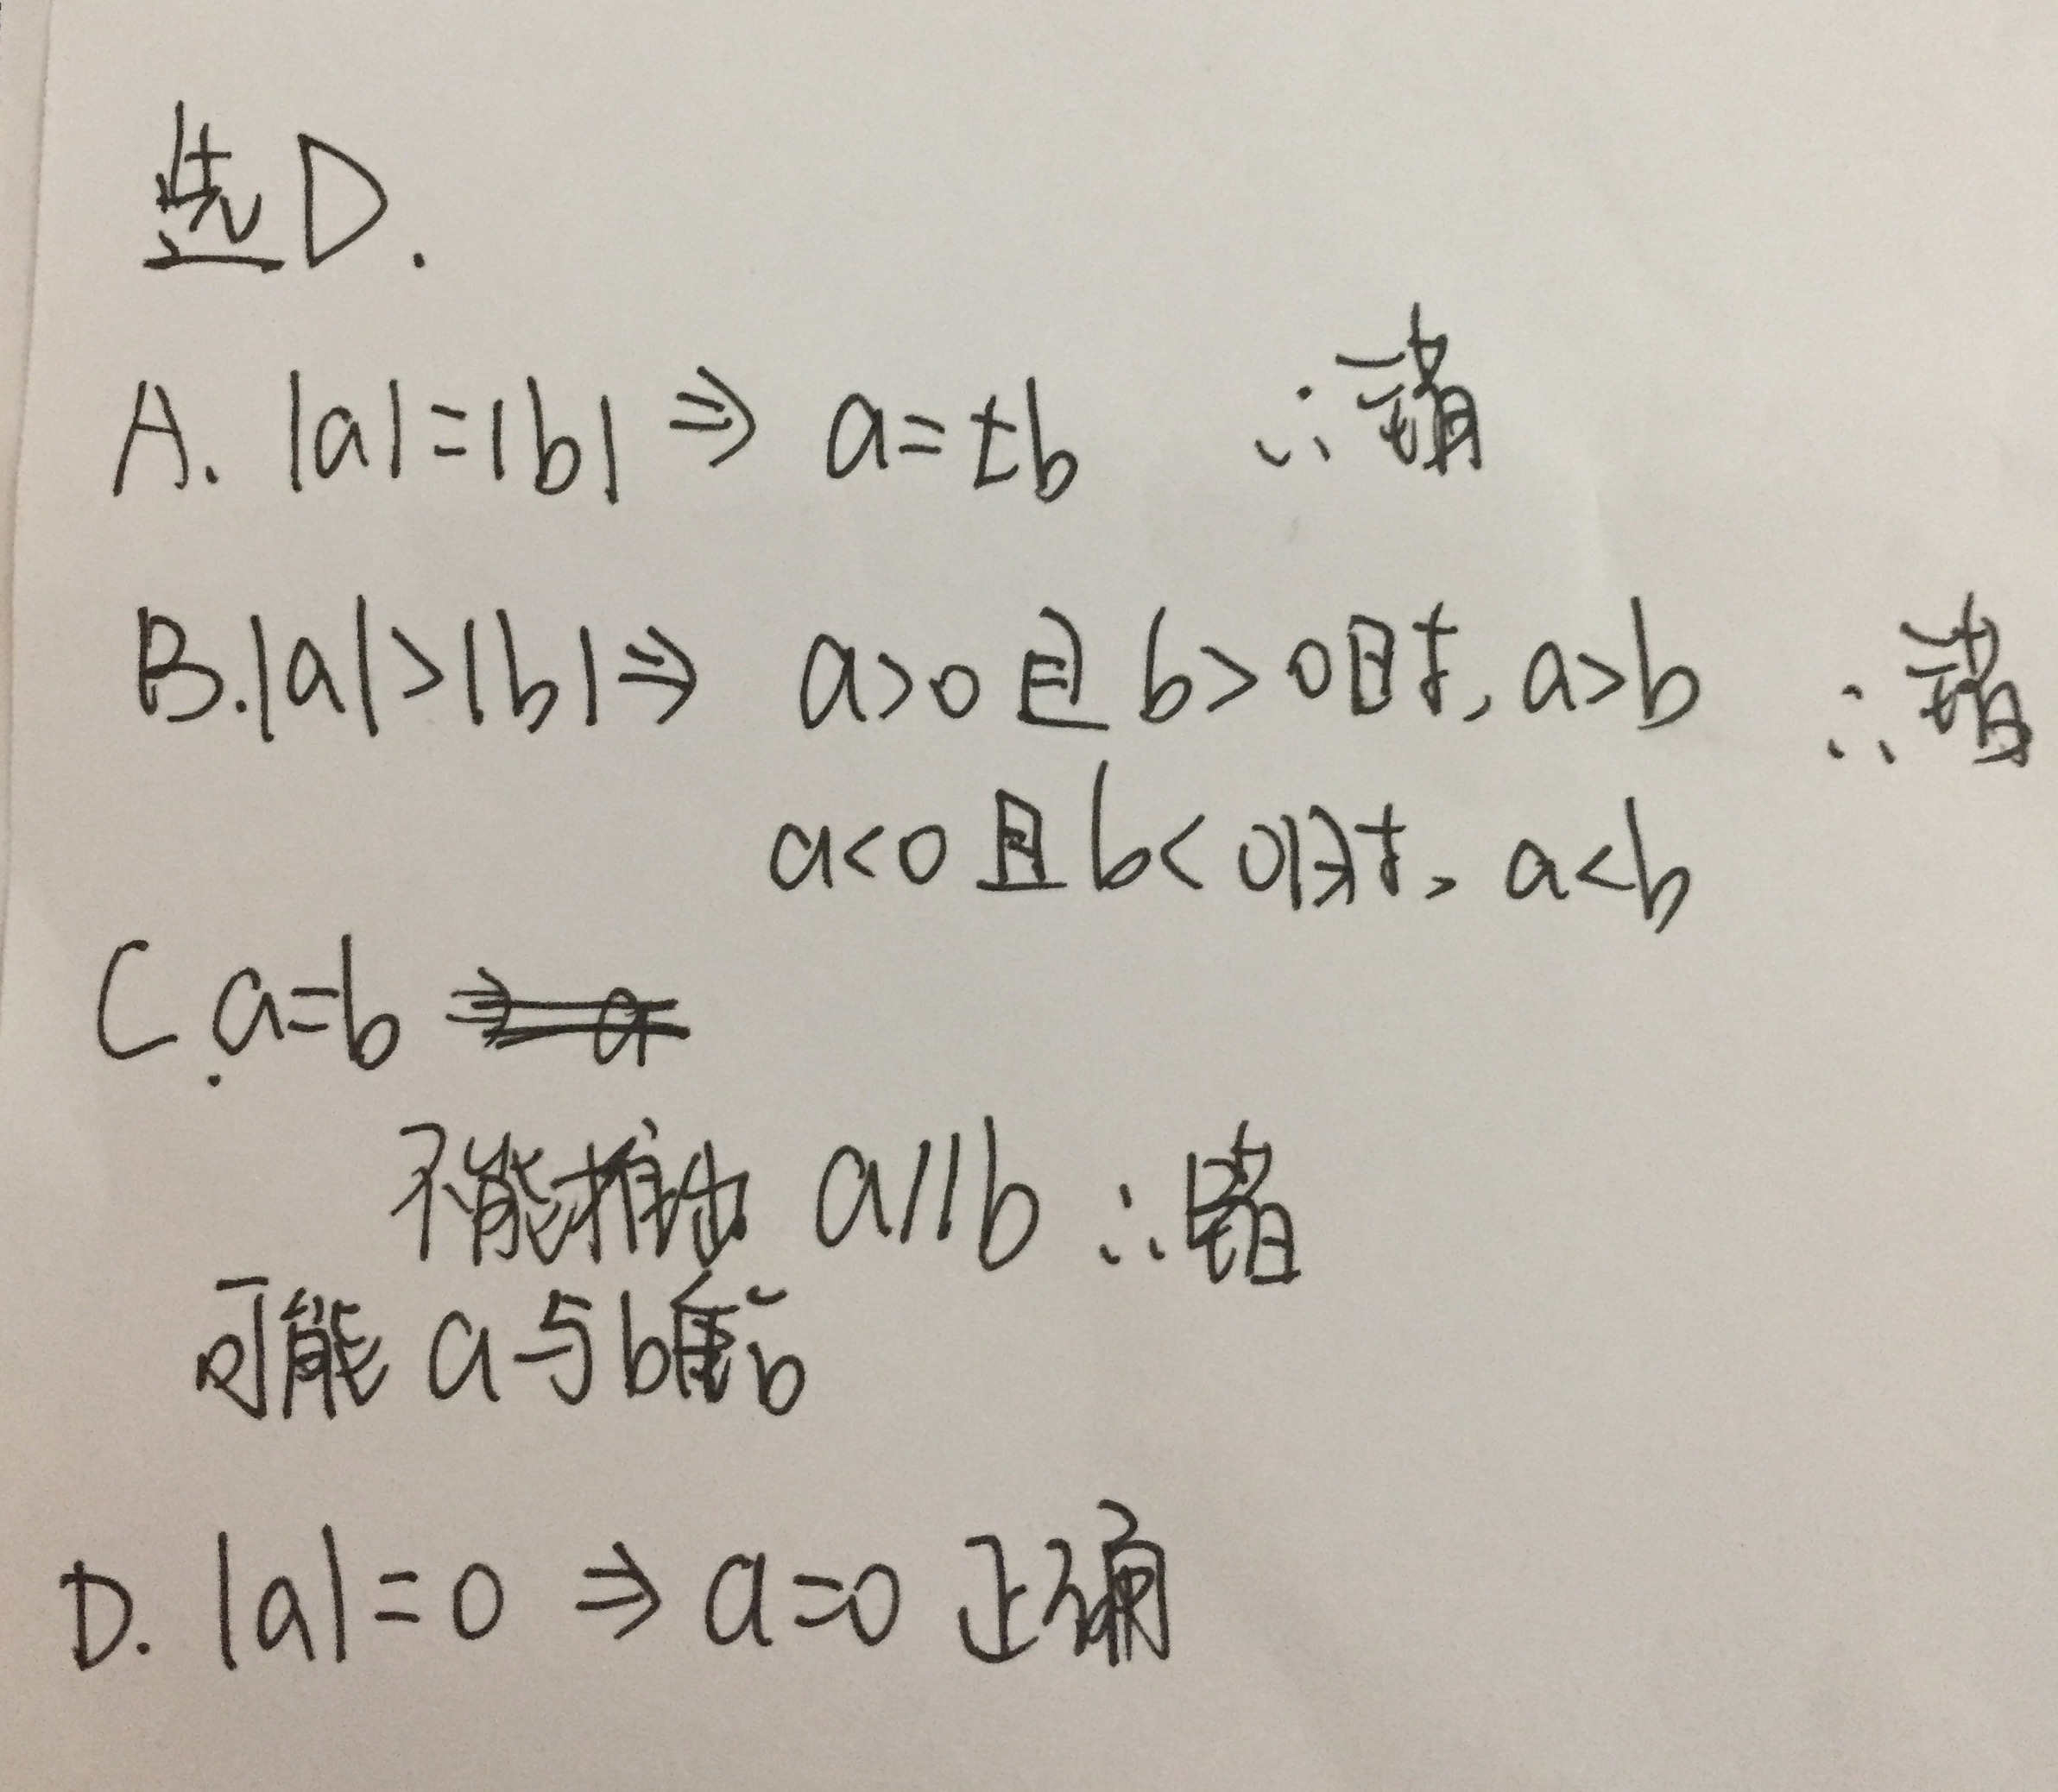 选D.
A. |a|=|b| ⇒ a=±b ∴错
B. |a|>|b| ⇒ a>0且b>0时, a>b ∴错
a<0且b<0时, a<b
C. a=b
不能推出 a//b ∴错
可能a与b重合
D. |a|=0 ⇒ a=0 正确